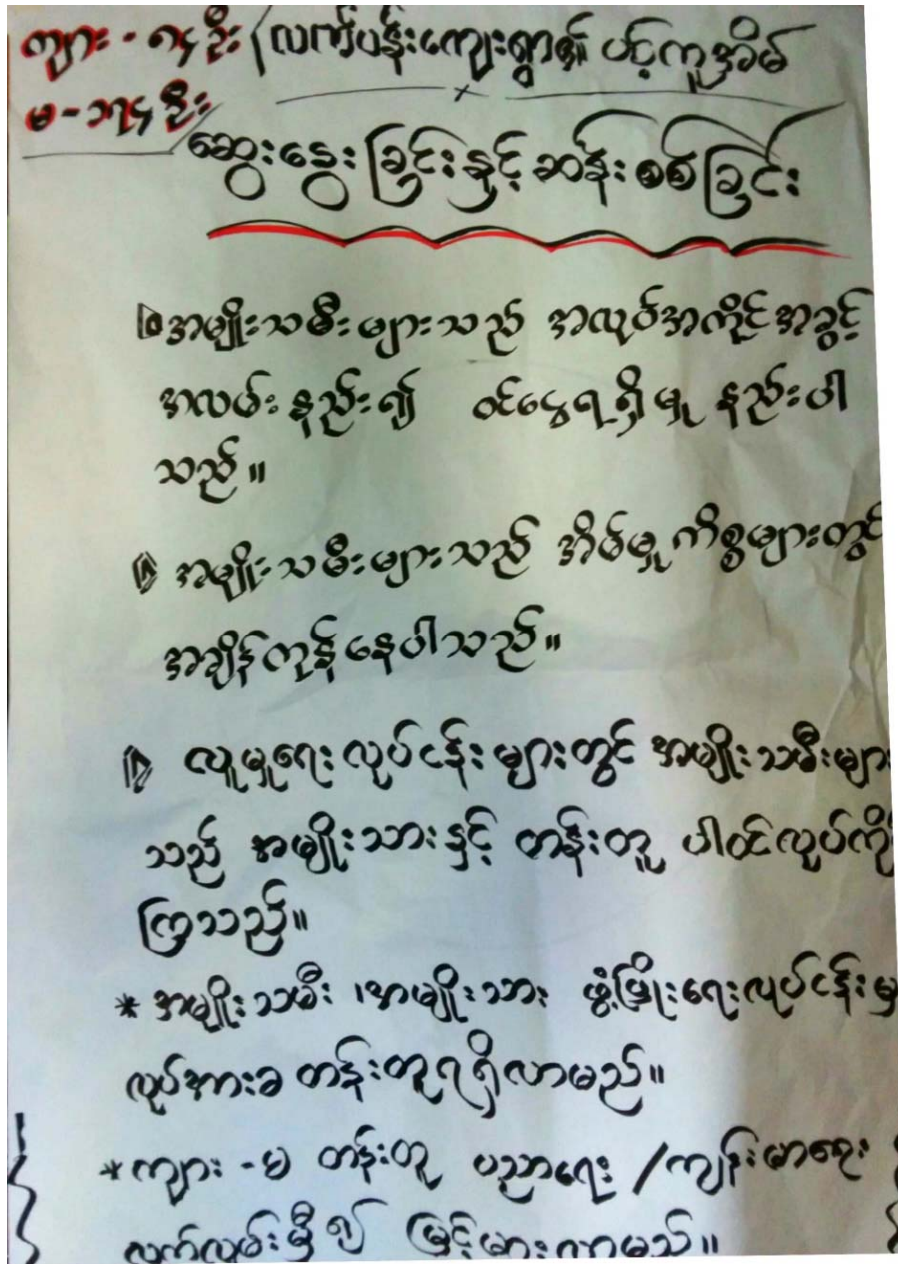 ကျား - ၈၄ ဦး လက်ပန်းကျေးရွာ၏ ပင့်ကူအိမ်
မ - ၁၃၄ ဦး
ဆွေးနွေးခြင်းနှင့်ဆန်းစစ်ခြင်း
အမျိုးသမီးများသည် အလုပ်အကိုင်အခွင့်
အလမ်းနည်း၍ ဝင်ငွေရရှိမှု နည်းပါ
သည်။
အမျိုးသမီးများသည် အိမ်မှုကိစ္စများတွင်
အချိန်ကုန်နေပါသည်။
လူမှုရေးလုပ်ငန်းများတွင် အမျိုးသမီးများ
သည် အမျိုးသားနှင့် တန်းတူ ပါဝင်လုပ်ကိုင်
ကြသည်။
* အမျိုးသမီး ၊ အမျိုးသား ဖွံ့ဖြိုးရေးလုပ်ငန်းမှ
လုပ်အားခ တန်းတူရရှိလာမည်။
* ကျား - မ တန်းတူ ပညာရေး / ကျန်းမာရေး
လက်လှမ်းမှီ၍ မြင့်မားလာမည်။